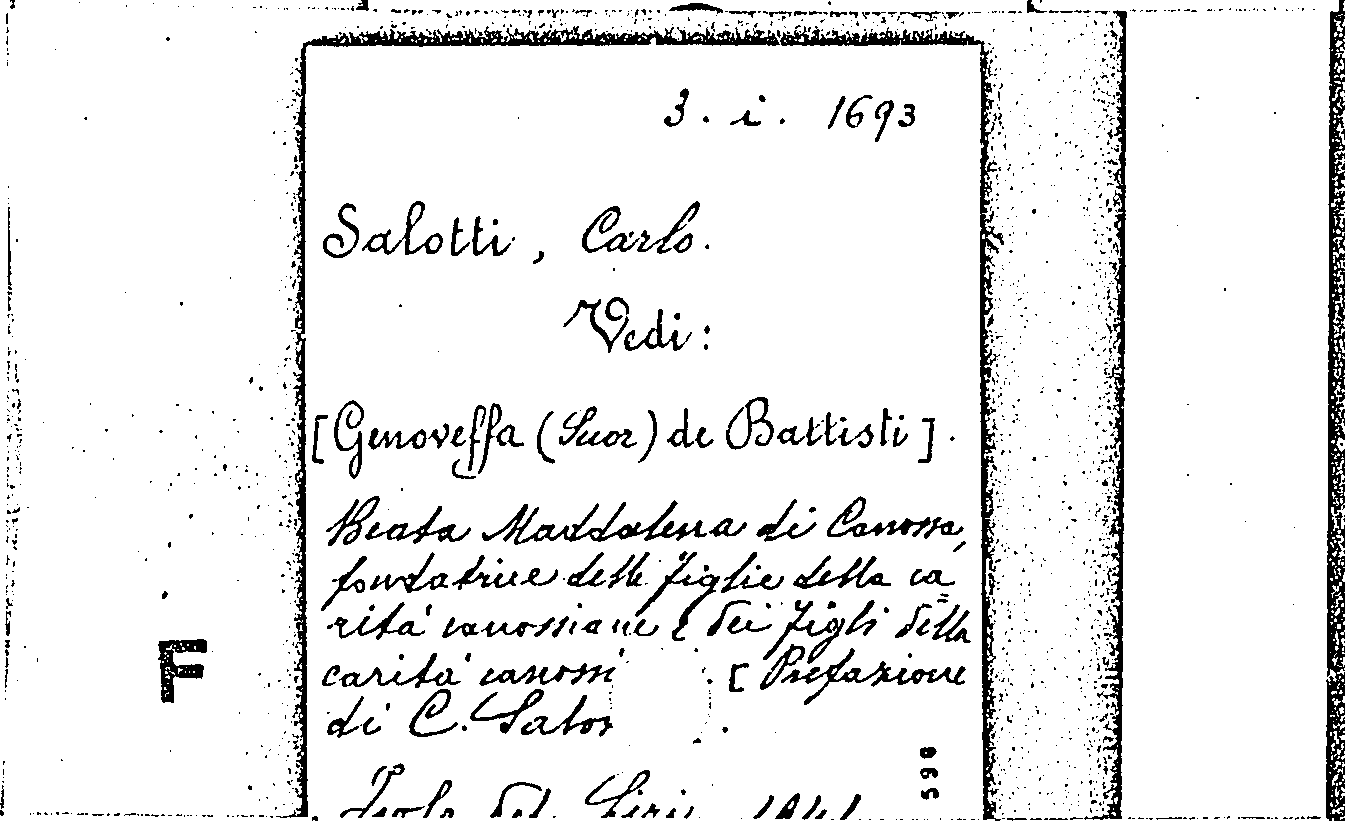 3. i. 1693
Salotti, Carlo.
Vedi:
[Genoveffa (Suor) de Battisti].
Beata Maddalena di Canossa,
fondatrice delle figlie della ca
rità canossiane e dei figli della
carità canossi . [Prefazione
di C. Salot .
Isola del Liri 1941
F
598